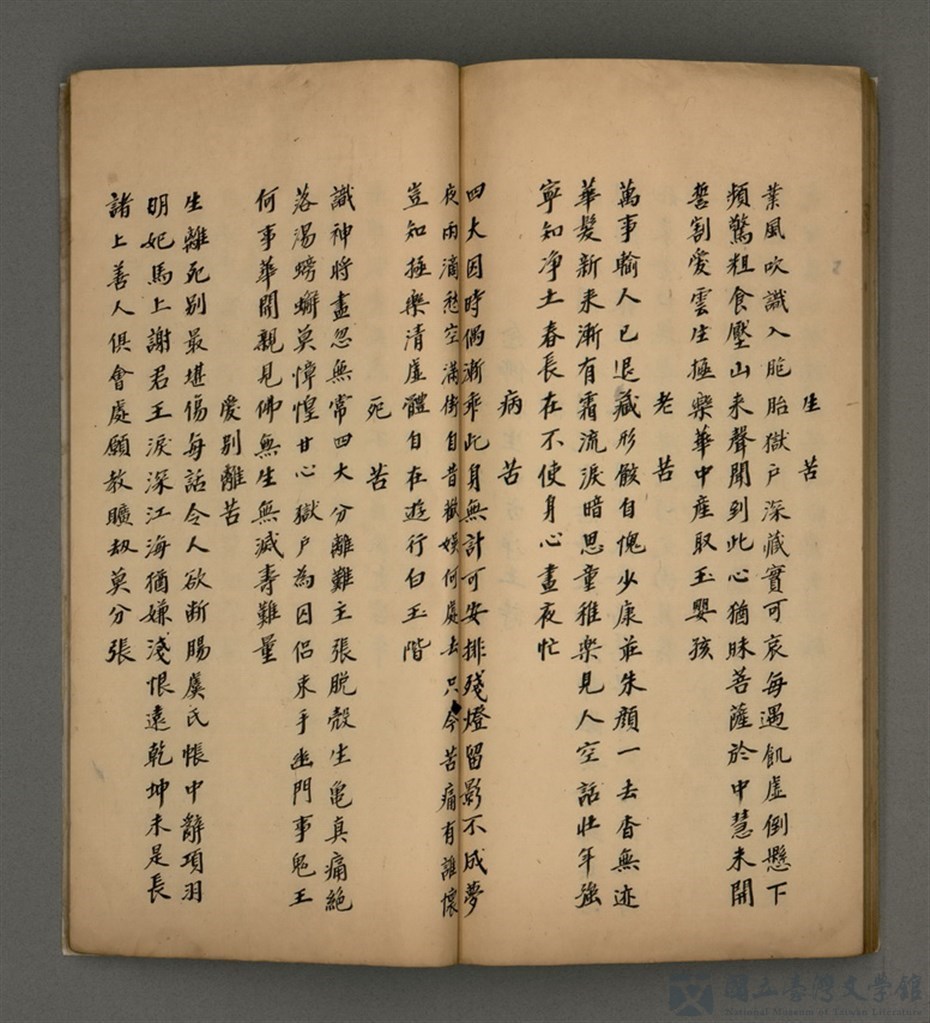 生苦
業風吹識入胞胎獄戶深藏實可哀每遇飢虛倒懸下
頻驚粗食壓山來聲聞到此心猶昧菩薩於中慧未開
誓割愛雲生極樂華中產取玉嬰孩
老苦
萬事輸人已退藏形骸自愧少康莊朱顏一去杳無迹
華髮新來漸有霜流淚暗思童稚樂見人空話壯年強
寧知净土春長在不使身心晝夜忙
病苦
四大因時偶漸乖此身無計可安排殘燈留影不成夢
夜雨滴愁空滿街自昔歡娛何處去只今苦痛有誰懷
豈知極樂清虛體自在遊行白玉階
死苦
識神將盡忽無常四大分離難主張脫殼生龜真痛絕
落湯螃蠏莫慞惶甘心獄戶為囚侶束手幽門事鬼王
何事華開親見佛無生無滅壽難量
愛別離苦
生離死別最堪傷每話令人欲断腸虞氏帳中辭項羽
明妃馬上謝君王淚深江海猶嫌淺恨遠乾坤未是長
諸上善人俱會處願教曠劫莫分張
國立臺灣文學館
National Museum of Taiwan Literature